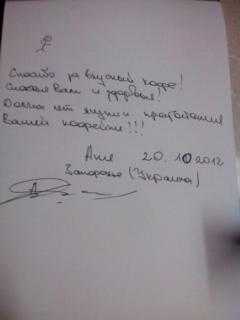 Спасибо за вкусный кофе!
Счастья Вам и здоровья!
Долгих лет жизни и процветания
Вашей кофейне!!!
Аня 20.10.2012
Запорожье (Украина)